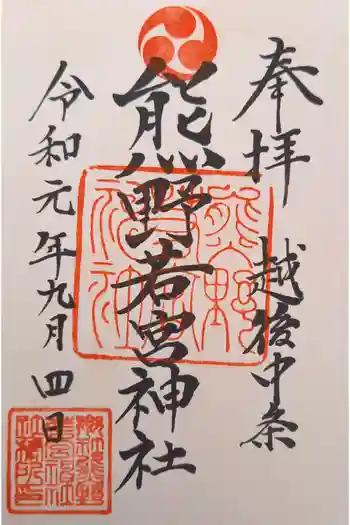 奉拝 越後中条
熊野若宮神社
令和元年九月四日